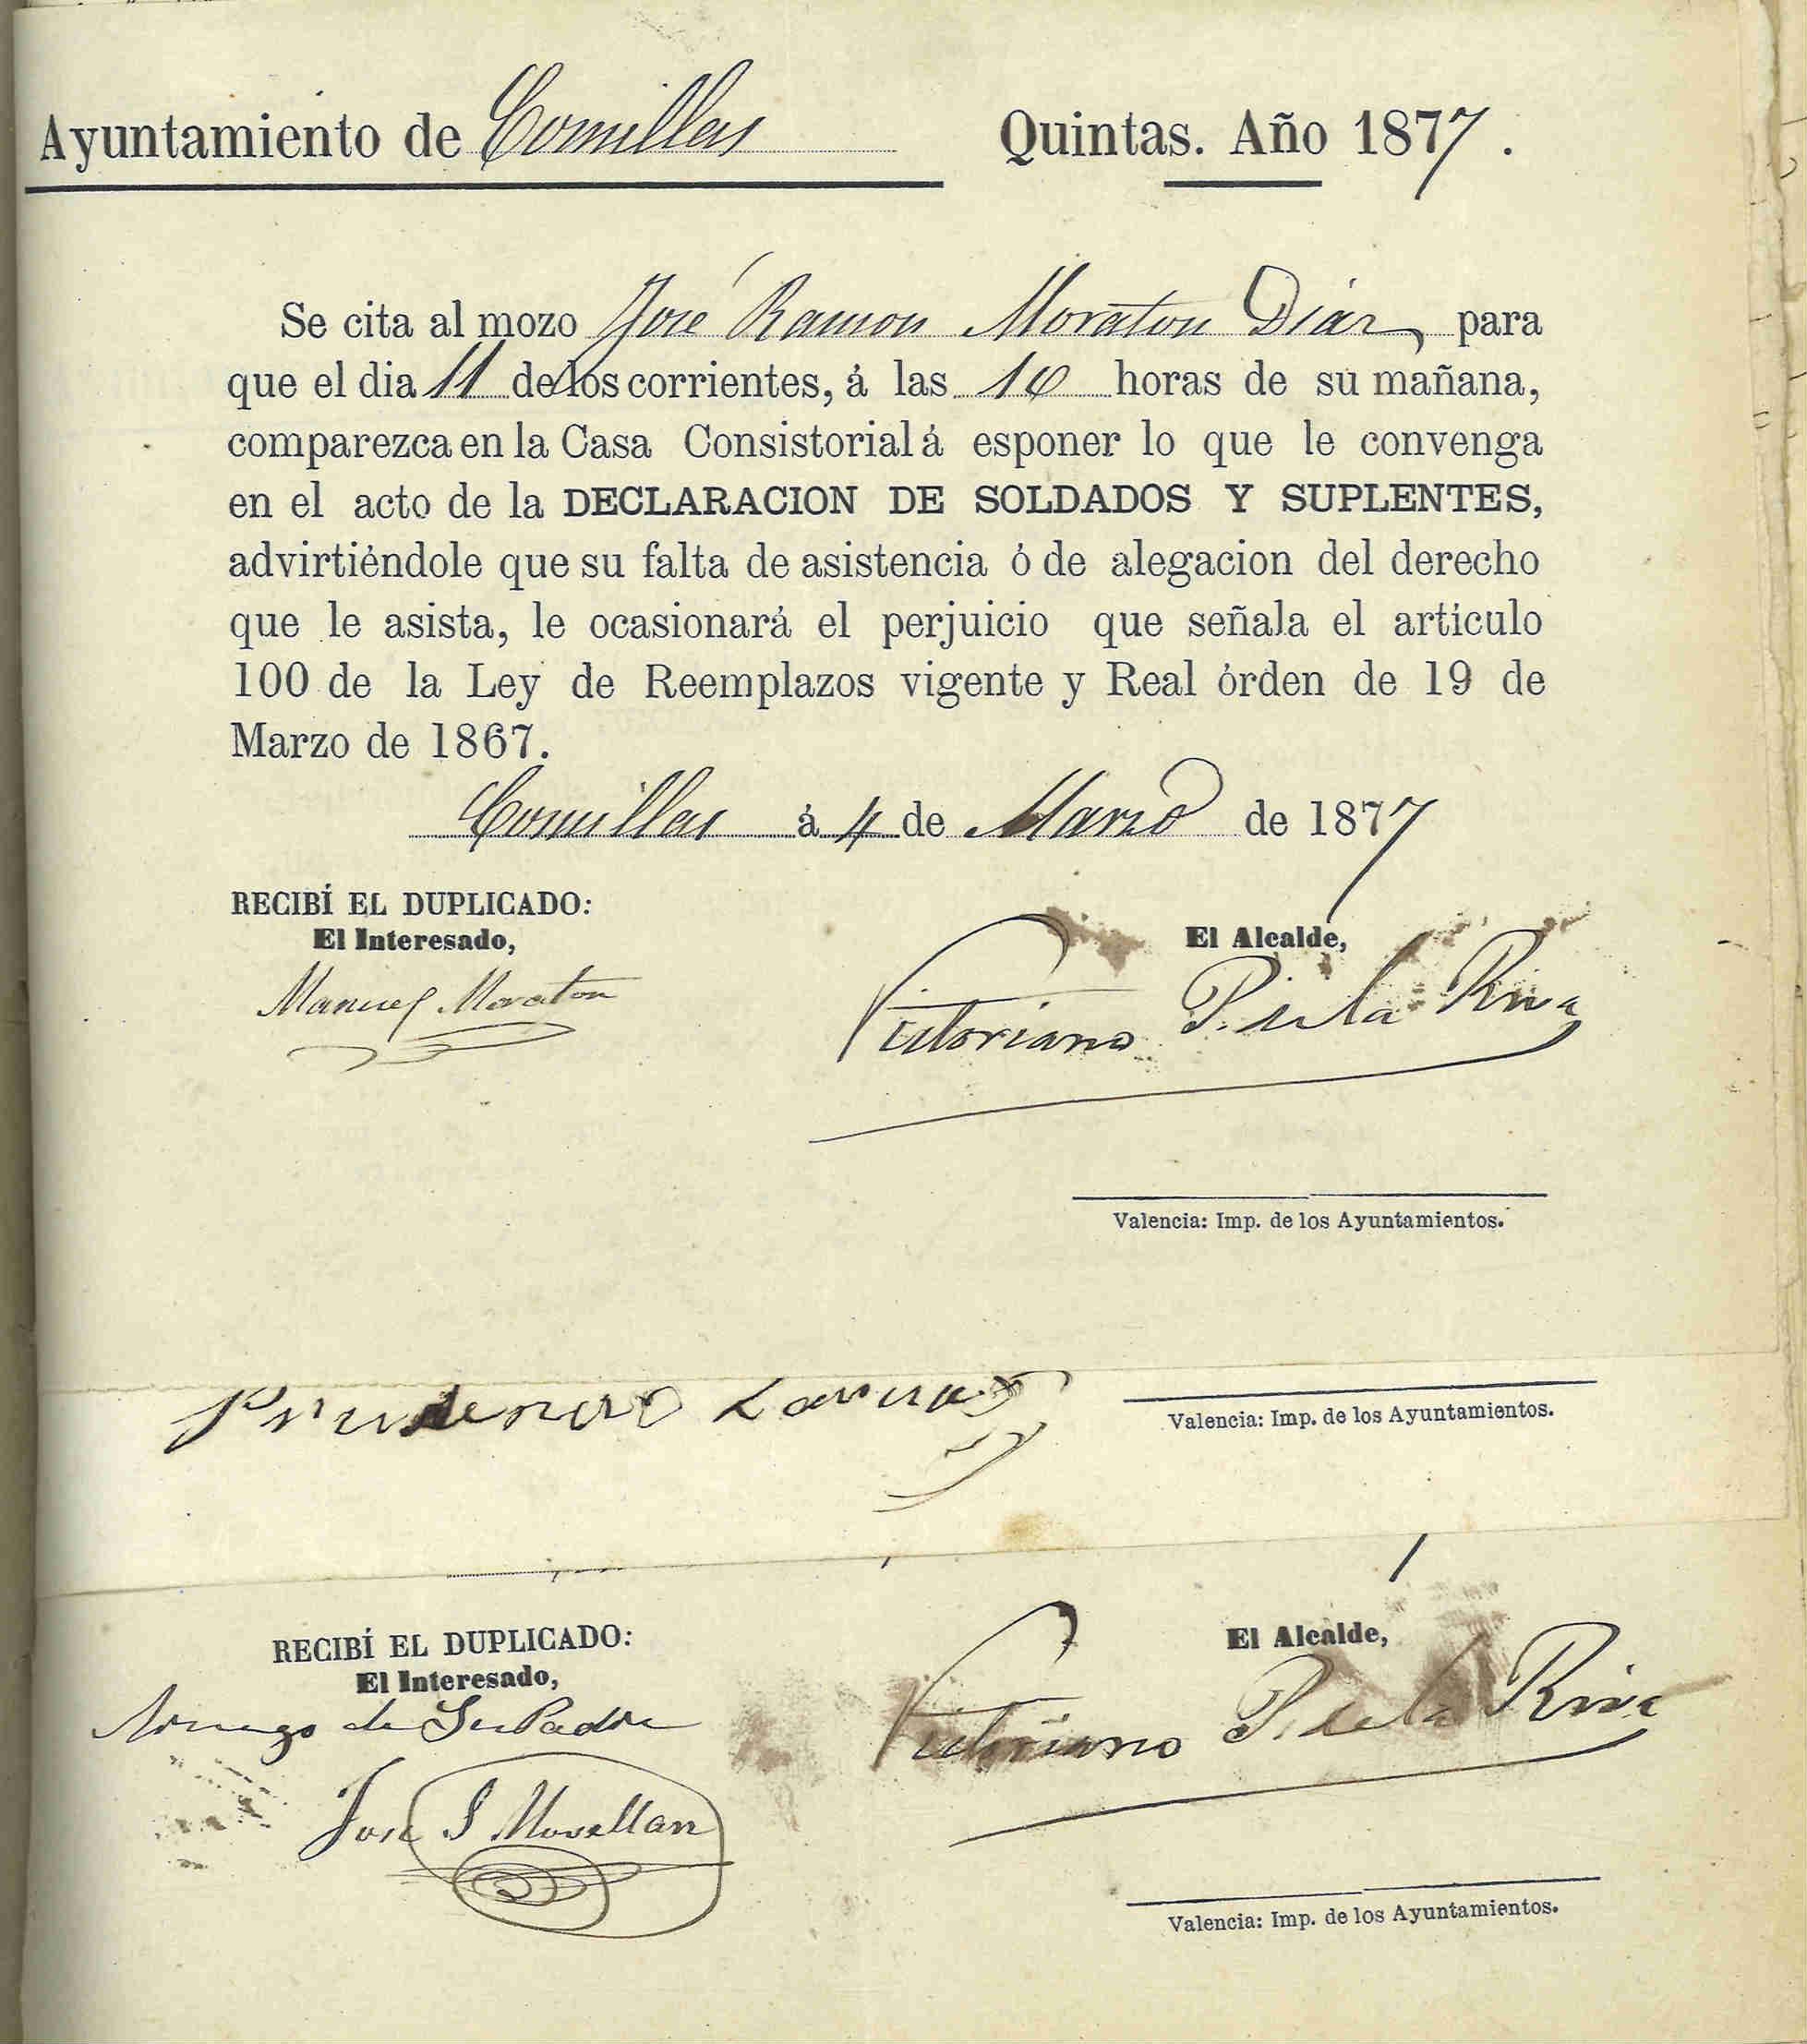 Ayuntamiento de Comillas Quintas. Año 1877.
Se cita al mozo José Ramon Moraton Diaz, para
que el dia 11 de los corrientes, á las 10 horas de su mañana,
comparezca en la Casa Consistorial á esponer lo que le convenga
en el acto de la DECLARACION DE SOLDADOS Y SUPLENTES,
advirtiéndole que su falta de asistencia ó de alegacion del derecho
que le asista, le ocasionará el perjuicio que señala el artículo
100 de la Ley de Reemplazos vigente y Real órden de 19 de
Marzo de 1867.
Comillas á 4 de Marzo de 1877
RECIBÍ EL DUPLICADO:
El Interesado,
El Alcalde,
Manuel Moraton
Victoriano P. de la Riva
Valencia: Imp. de los Ayuntamientos.
Prudencio
Valencia: Imp. de los Ayuntamientos.
RECIBÍ EL DUPLICADO:
El Interesado,
El Alcalde,
Aruego de Su Padre
Victoriano P. de la Riva
Jose S Movellan
Valencia: Imp. de los Ayuntamientos.